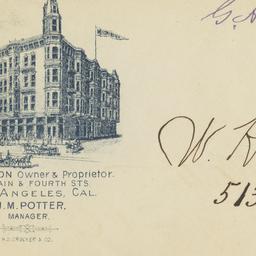 G. A
ON Owner & Proprietor.
AIN & FOURTH STS.
ANGELES, CAL.
M. POTTER,
MANAGER.
H.S. CROCKER & CO.
W. H
513